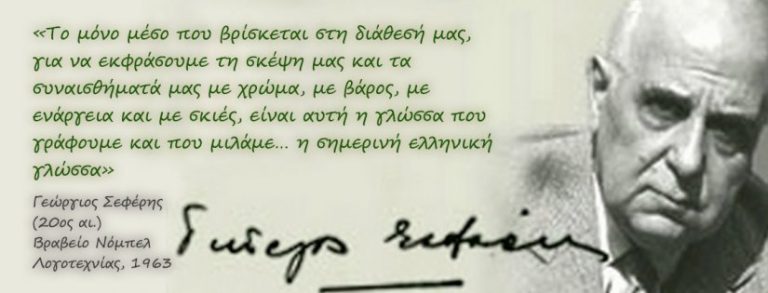 «Το μόνο μέσο που βρίσκεται στη διάθεσή μας,
για να εκφράσουμε τη σκέψη μας και τα
συναισθήματά μας με χρώμα, με βάρος, με
ενάργεια και με σκιές, είναι αυτή η γλώσσα που
γράφουμε και που μιλάμε... η σημερινή ελληνική
γλώσσα»
Γεώργιος Σεφέρης
(20ος αι.)
Βραβείο Νόμπελ
Λογοτεχνίας, 1963
Γιώργος Σεφέρης